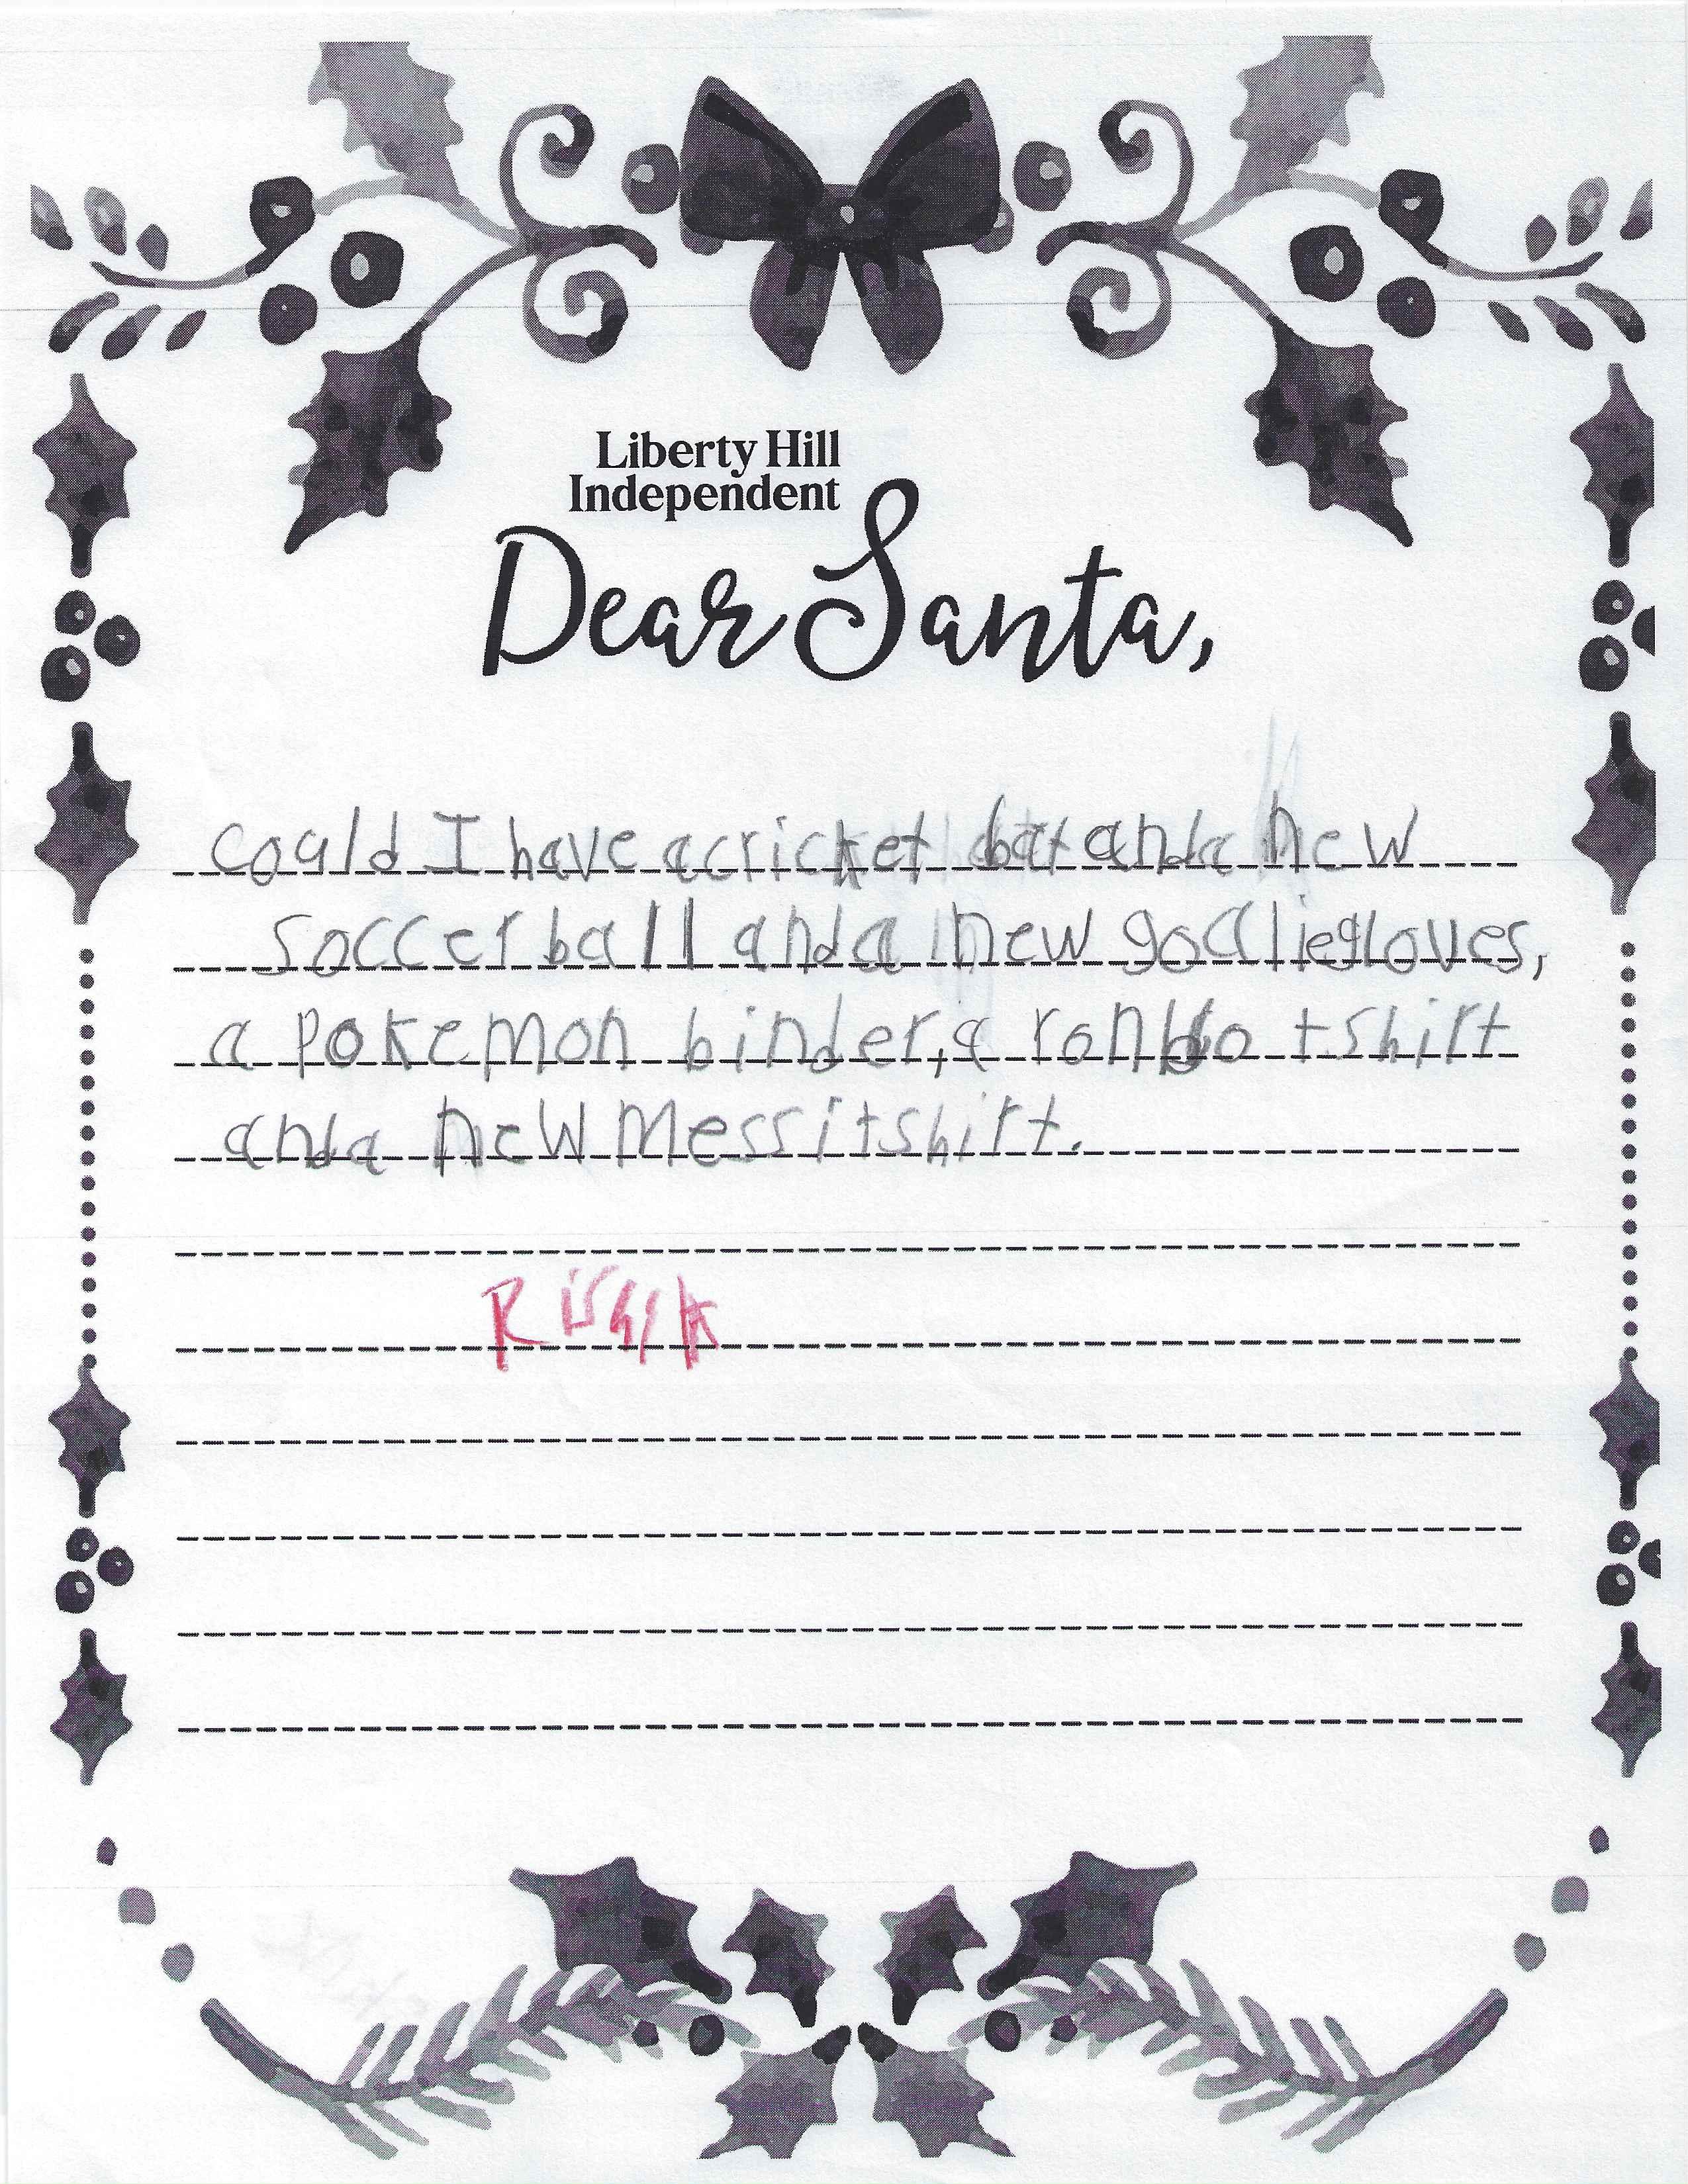 Liberty Hill
Independent
Dear Santa,
could I have a cricket bat and a new
soccer ball and a new goalie gloves,
a pokemon binder, a ronbo t shirt
and a new messi tshirt.